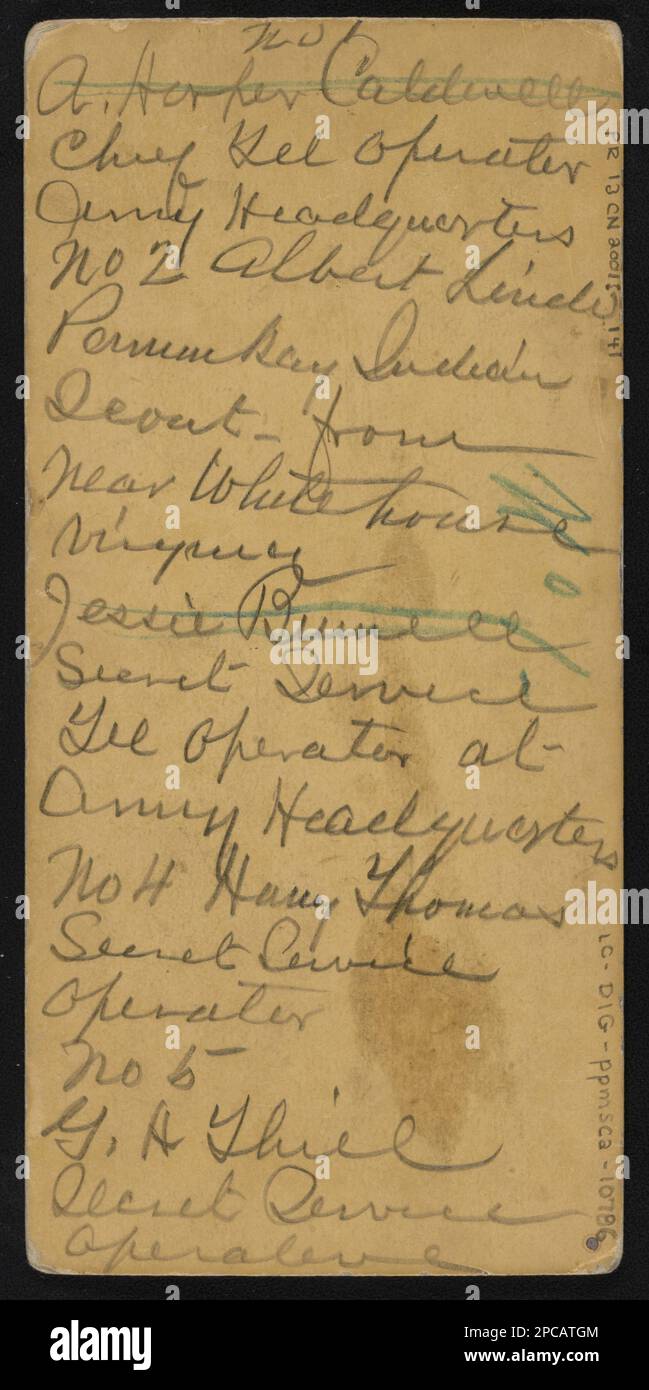 No 1
A. Harper Caldwell
Chief Tel Operator
Army Headquarters
No 2 Albert Linde
Pemunkay Indian
Scout - from
near White house
Virginia
No.
Jessie Bunnell
Secret Service
Tel Operator at
Army Headquarters
No 4 Harry Thomas
Secret Service
Operator
No 5
G. H Thiel
Secret Service
Operative
PR 13 CN 2001:5 141
LC-DIG-ppmsca-10786
alamy
Image ID: 2PCATGM
www.alamy.com